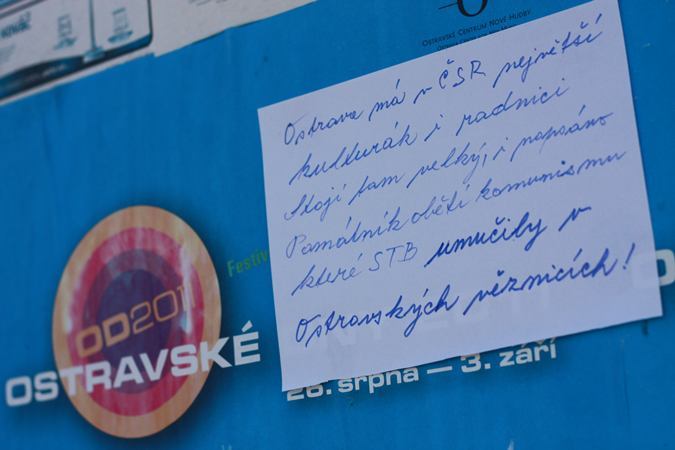 OSTRAVSKÉ CENTRUM NOVÉ HUDBY
Ostrava má v ČSR největší
kulturák i radnici
Stojí tam velký, i napsáno
Památník obětí komunismu
které STB umučily v
Ostravských věznicích!
Festiv
OD2011
OSTRAVSKÉ
28. srpna — 3. září